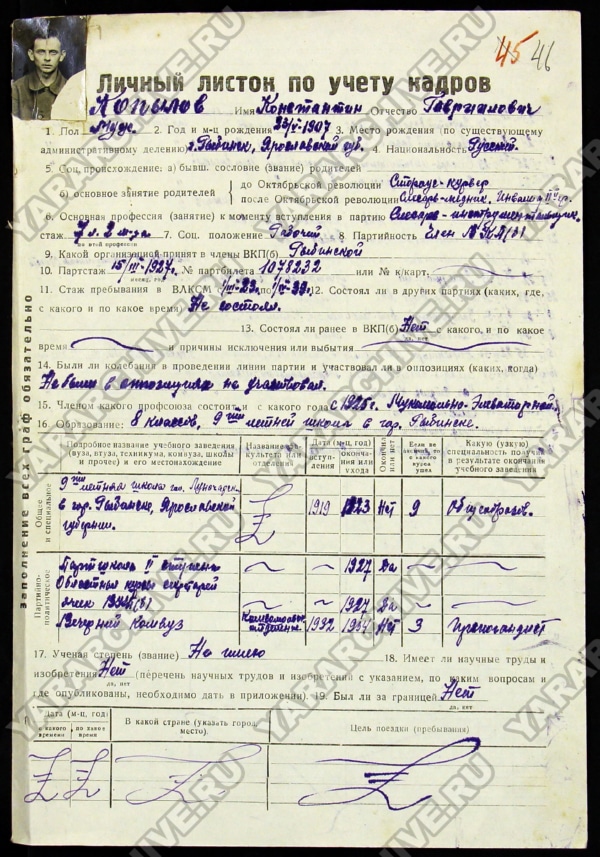 45 46
Личный листок по учету кадров
Копылов Имя Константин Отчество Гаврилович
1. Пол Муж. 2. Год и м-ц рождения 23/V-1907 3. Место рождения (по существующему
административному делению) г. Рыбинск, Ярославской губ. 4. Национальность Русский.
5. Соц. происхождение: а) бывш. сословие (звание) родителей
б) основное занятие родителей
до Октябрьской революции Сторож-курьер
после Октябрьской революции Слесарь-медник. Инвалид II гр.
6. Основная профессия (занятие) к моменту вступления в партию Слесарь-инструментальщик.
стаж 7 л. 2 м-ца 7. Соц. положение Рабочий 8. Партийность Член ВКП(б)
по этой профессии
9. Какой организацией принят в члены ВКП(б) Рыбинской
10. Партстаж 15/III-1927г. № партбилета 1078232 или № к/карт.
11. Стаж пребывания в ВЛКСМ с по 12. Состоял ли в других партиях (каких, где,
с какого и по какое время) Не состоял.
13. Состоял ли ранее в ВКП(б) Нет с какого, и по какое
да, нет
время и причины исключения или выбытия
14. Были ли колебания в проведении линии партии и участвовал ли в оппозициях (каких, когда)
Не было в оппозициях не участвовал.
15. Членом какого профсоюза состоит и с какого года с 1925г. Мукомольно-Элеваторной
16. Образование: 8 классов, 9ти летней школы в гор. Рыбинске.
Подробное название учебного заведения (вуза, втуза, техникума, комвуза, школы и прочее) и его местонахождение
Название факультета или отделения
Дата (м-ц, год)
поступления
окончания или ухода
Окончил или нет
Если не окончил, то с какого курса ушел
Какую (узкую) специальность получил в результате окончания учебного заведения
Общее и специальное
9ти летняя школа им. Луначарск.
в гор. Рыбинске, Ярославской
губернии.
1919 1923 Нет 9 Общеобразов.
Партийно-политическое
Партшкола II ступени 1927 Да
Областные курсы секретарей
ячеек ВКП(б) Да
Вечерний Комвуз 1932 Нет 3 Пропагандист
17. Ученая степень (звание) Не имею 18. Имеет ли научные труды и
изобретения Нет (перечень научных трудов и изобретений с указанием, по каким вопросам и
да, нет
где опубликованы, необходимо дать в приложении). 19. Был ли за границей Нет
да, нет
Дата (м-ц, год)
с какого времени
по какое время
В какой стране (указать город, место).
Цель поездки (пребывания)
Заполнение всех граф обязательно
YARARCHIVE.RU